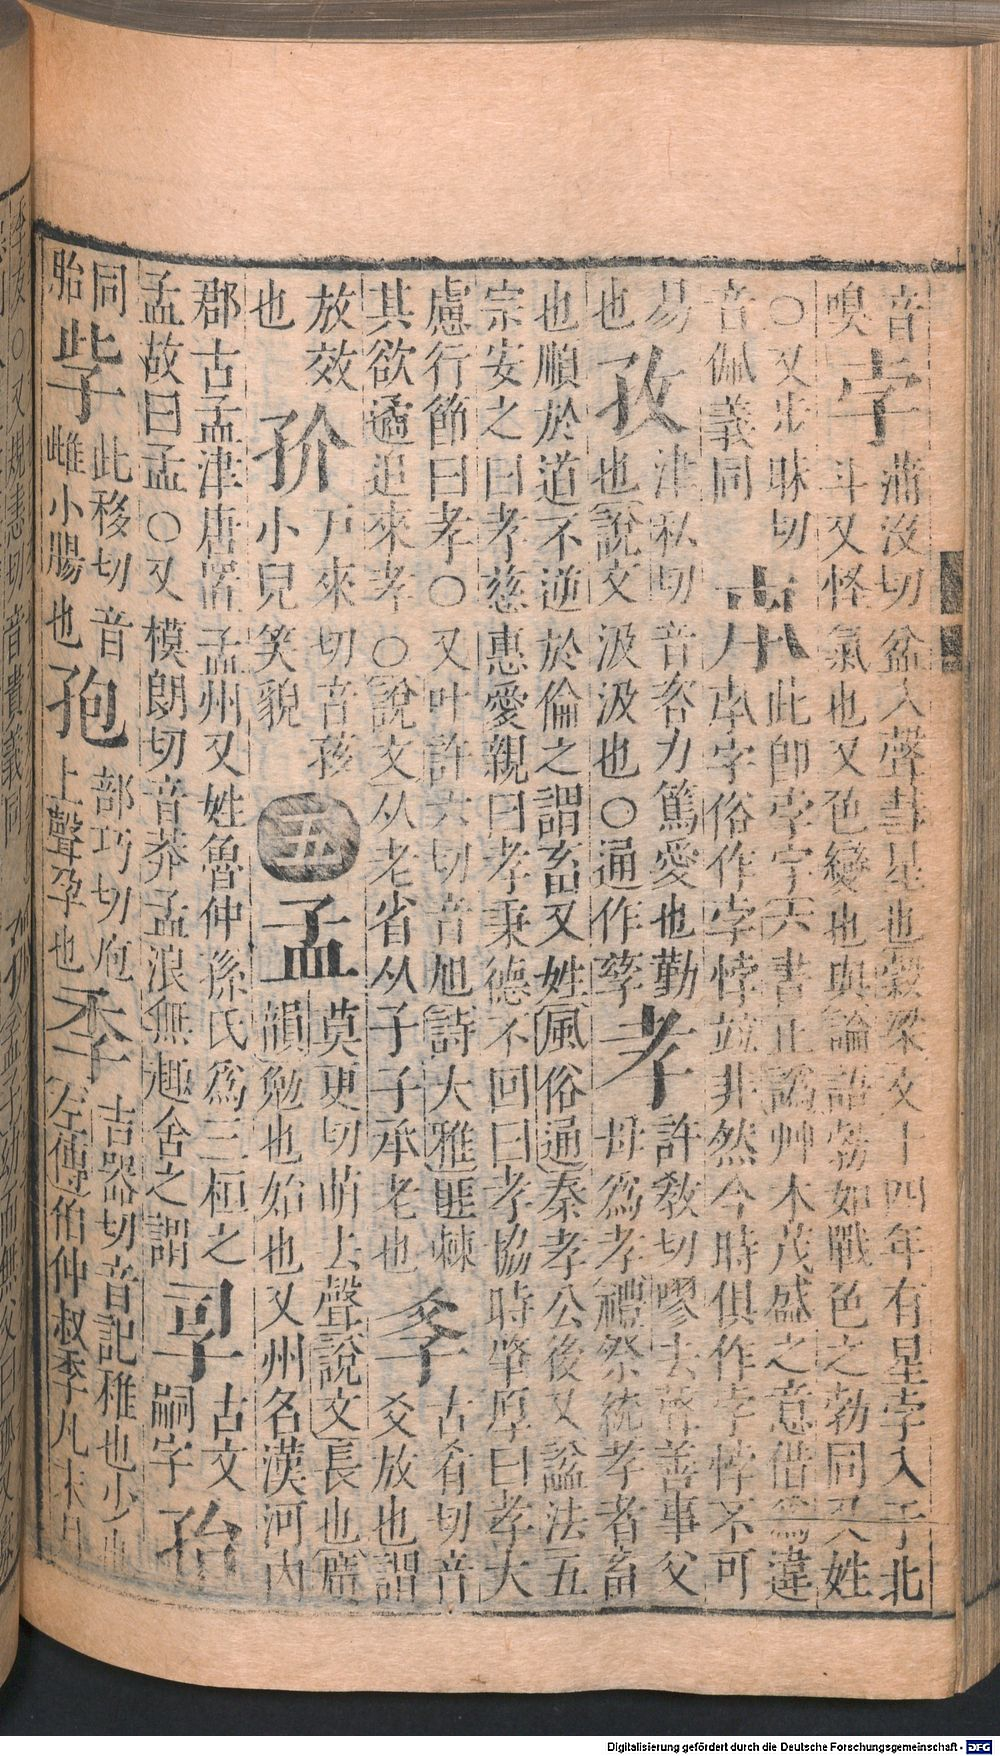 音
嗅
孛
蒲沒切盆入聲彗星也穀梁文十四年有星孛入于北
斗又怪氣也又色變也與論語勃如戰色之勃同又姓
○又步昧切
音佩義同
此即孛字六書正譌艸木茂盛之意借爲違
本字俗作孛悖竝非然今時俱作孛悖不可
易
也
孜
津私切音咨力篤愛也勤
也說文汲汲也○通作孳
孝
許教切嘐去聲善事父
母爲孝禮祭統孝者畜
也順於道不逆於倫之謂畜又姓風俗通秦孝公後又諡法五
宗安之曰孝慈惠愛親曰孝秉德不回曰孝協時肇厚曰孝大
慮行節曰孝○又叶許六切音旭詩大雅匪棘
其欲遹追來孝○說文从老省从子子承老也
𡥈
古肴切音
爻放也謂
放效
也
㜾
戸來切音孩
小兒笑貌
五
孟
莫更切萌去聲說文長也廣
韻勉也始也又州名漢河內
郡古孟津唐置孟州又姓魯仲孫氏爲三桓之
孟故曰孟○又模朗切音莽孟浪無趣舍之謂
孠
古文
嗣字
孡
同
胎
此移切音
雌小腸也
孢
部巧切庖
上聲孕也
季
吉器切音記稚也少也
左傳伯仲叔季凡末曰
Digitalisierung gefördert durch die Deutsche Forschungsgemeinschaft - DFG